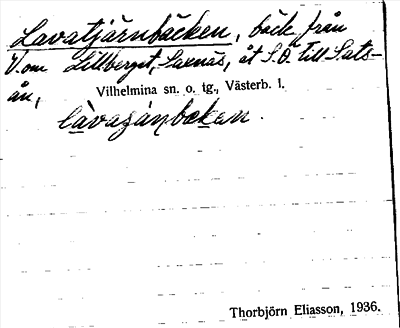 Lavatjärnbäcken, bäck från
V. om Lillberget, Saxnäs, åt S.Ö. till Sats-
ån, Vilhelmina sn. o. tg., Västerb. l.
Thorbjörn Eliasson, 1936.